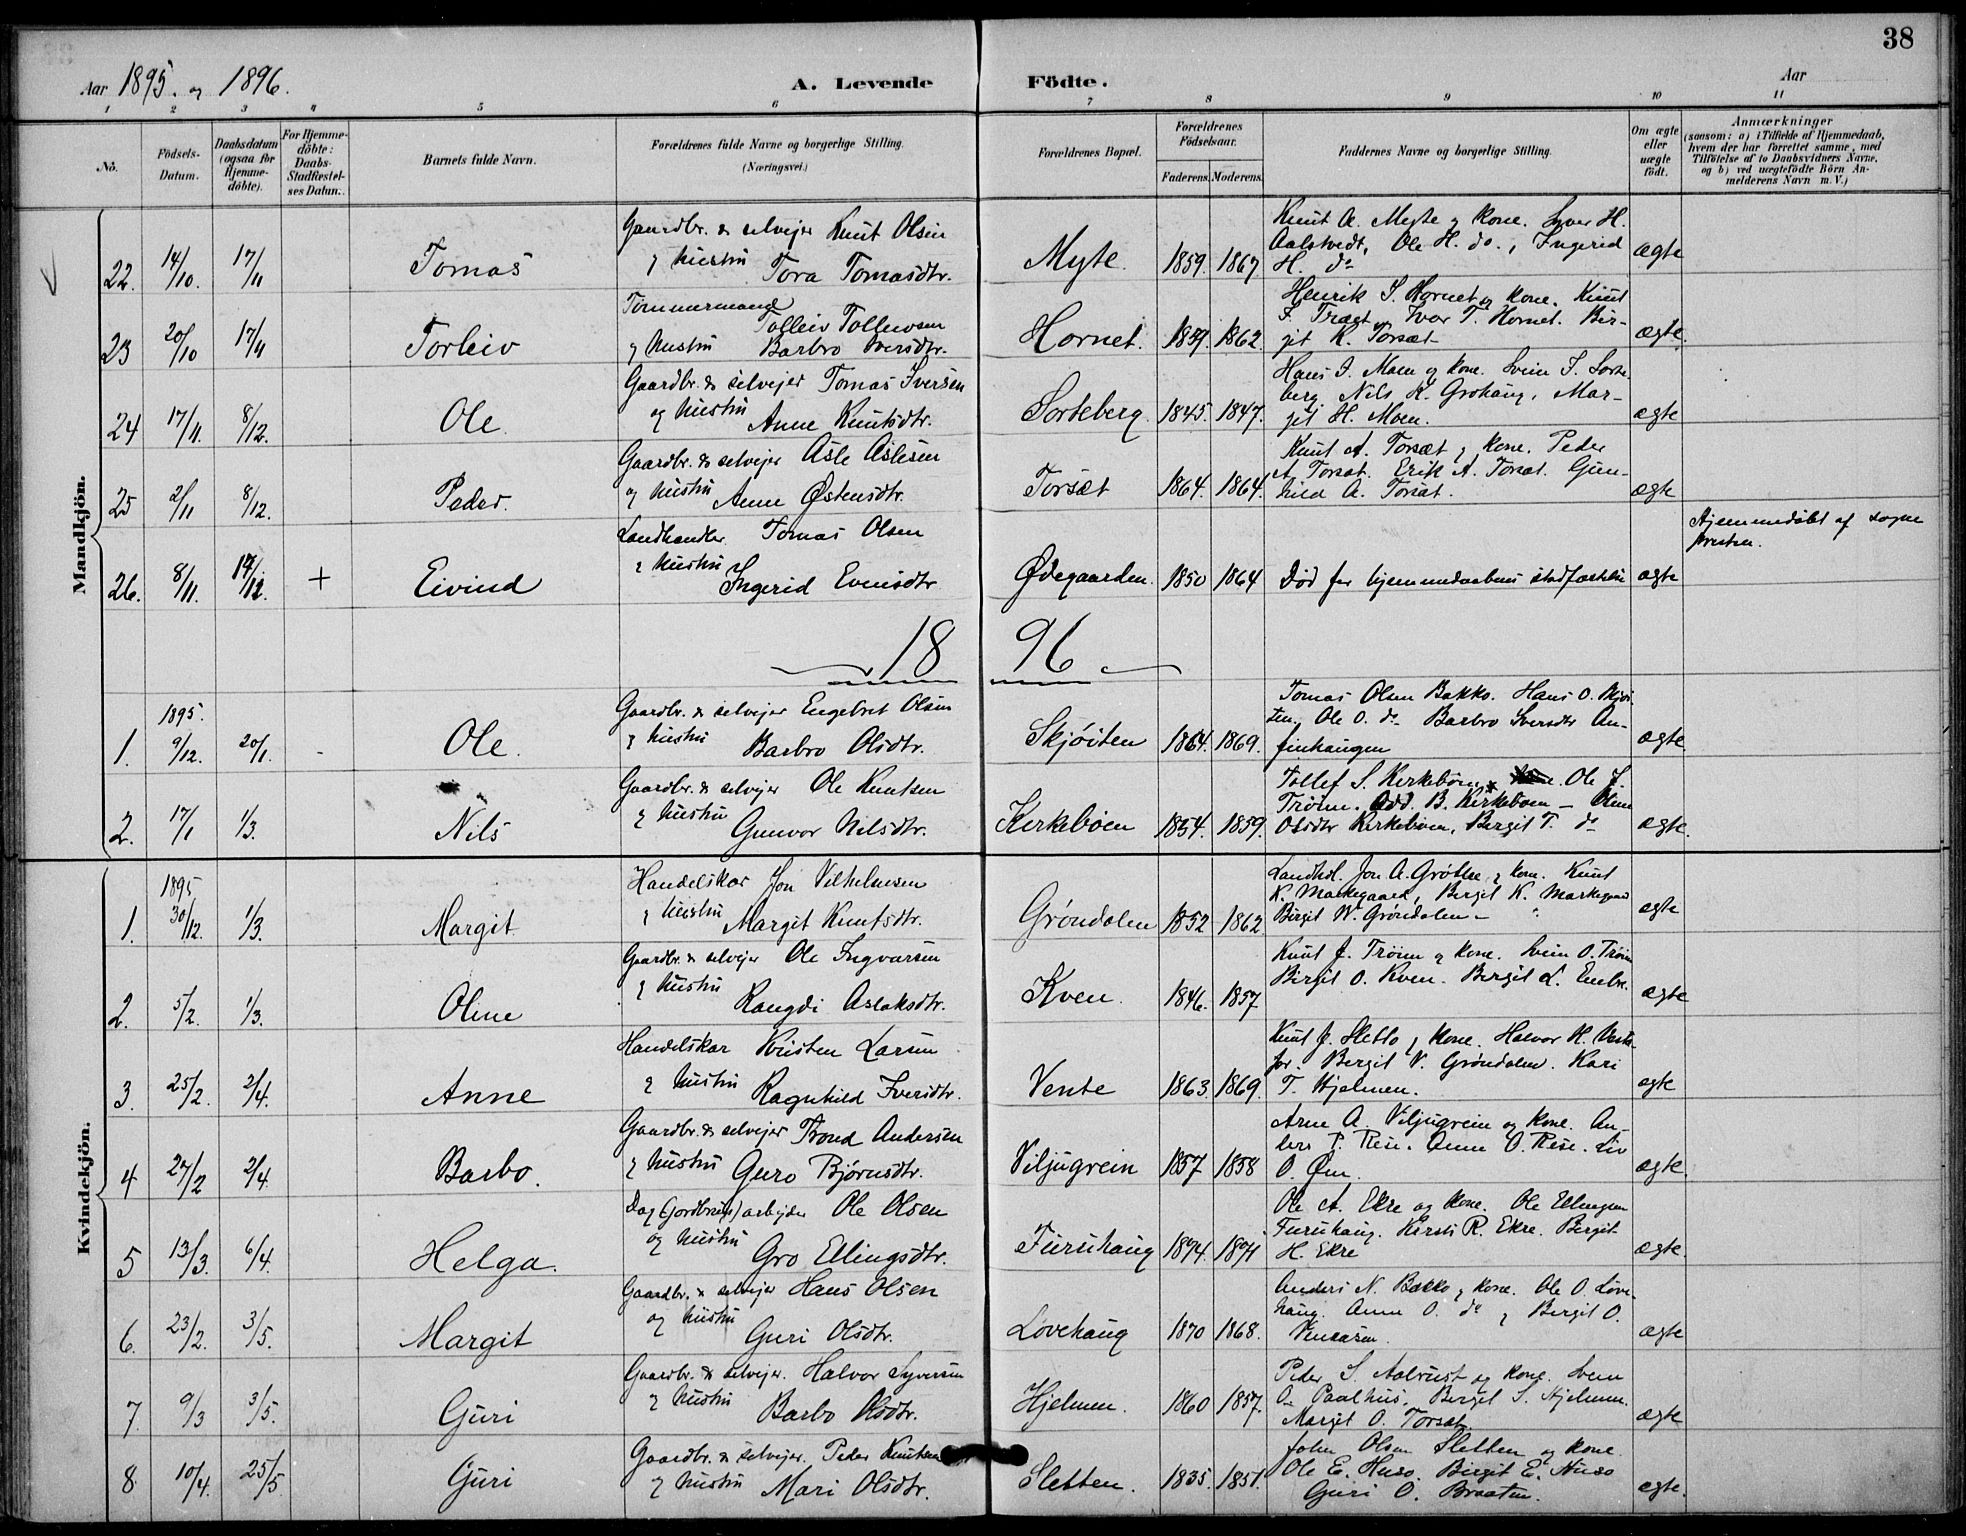 38
Aar 1895. og 1896.
A. Levende Födte.
Aar
1 2 3 4 5 6 7 8 9 10 11
No.
Födsels-Datum.
Daabsdatum (ogsaa for Hjemme-döbte).
For Hjemme-döbte: Daabs-Stadfæstel-ses Datum.
Barnets fulde Navn.
Forældrenes fulde Navne og borgerlige Stilling.
(Næringsvei.)
Forældrenes Bopæl.
Forældrenes Födselsaar.
Faderens. Moderens.
Faddernes Navne og borgerlige Stilling.
Om ægte eller uægte födt.
Anmærkninger
(saasom: a) i Tilfælde af Hjemmedaab,
hvem der har forrettet samme, med
Tilföielse af to Daabsvidners Navne,
og b) ved uægtefödte Börn An-
melderens Navn m. V.)
Mandkjön.
22. 14/10. 17/11 Tomas
Gaardbr. & selvejer Knut Olsen
og hustru Tora Tomasdtr.
Myte. 1859. 1867
Knut A. Myte og kone. Syver H.
Aalstvedt, Ole H. do., Ingerid
H. do
ægte
23 20/10 17/11 Torleiv
Tømmermand
Tolleiv Tolleivsen
og hustru Barbro Iversdtr.
Hornet. 1859. 1862.
Henrik S. Hornet og kone. Knut
F. Træet, Ivar T. Hornet. Bir-
git K. Torsæt
ægte.
24 17/11. 8/12. Ole
Gaardbr. & selvejer Tomas Iversen
og hustru Anne Knutsdtr.
Sorteberg. 1845. 1847.
Hans I. Moen og kone. Svein I. Sorte-
berg. Nils K. Grohaug, Mar-
git H. Moen.
ægte
25 2/11 8/12. Peder.
Gaardbr. & selvejer Asle Aslesen
og hustru Anne Østensdtr.
Torsæt 1864. 1864.
Knut A. Torsæt og kone. Peder
A. Torsæt. Erik A. Torsæt. Gun-
hild A. Torsæt.
ægte
26. 8/11. 17/12. + Eivind
Landhandler Tomas Olsen
og hustru Ingerid Evensdtr
Ødegaarden. 1850 1864
Død før hjemmedaabens stadfæstelse
ægte
Hjemmedøbt af sogne
presten.
18 96
1. 1895. 9/12. 20/1. Ole.
Gaardbr. & selvejer Engebret Olsen
og hustru Barbro Olsdtr.
Skjøiten 1864. 1869.
Tomas Olsen Bakko. Hans O. Skjøi-
ten. Ole O. do Barbro Iversdtr An-
finhaugen
ægte.
2. 17/1 1/3. Nils
Gaardbr. & selvejer Ole Knutsen
og hustru Gunvor Nilsdtr.
Kirkebøen 1854. 1859.
Tollef S. Kirkebøen. Ole J.
Trøim. Odd. B. Kirkebøen – Oline
Olsdtr Kirkebøen, Bergit T. do
ægte.
Kvindekjön.
1. 1895 30/12. 1/3. Margit
Handelskar Jon Vilhelmsen
og hustru Margit Knutsdtr.
Grøndalen 1852 1862
Landhd. Jon A. Grøthe og kone. Knut
K. Markegaard, Bergit K. Markegaard
Birgit W. Grøndalen –
ægte
2. 5/2. 1/3. Oline
Gaardbr. & selvejer Ole Ingvarsen
og hustru Rangdi Aslaksdtr.
Kven. 1846. 1857
Knut J. Trøim og kone. Svein O. Trøim
Birgit O. Kven. Bergit L. Embre.
ægte
3. 25/2. 2/4. Anne
Handelskar Kristen Larsen
og hustru Ragnhild Iversdtr.
Vente 1863. 1869.
Knut J. Sletto og kone. Halvor H.
Bergit V. Grøndalen. Kari
T. Hjelmen.
ægte
4 27/2 2/4 Barbo.
Gaardbr. & selvejer Trond Andersen
og hustru Guro Bjørnsdtr.
Viljugrein 1857 1858
Arne A. Viljugrein og kone. An-
ders P. Rese. Anne O. Rese. Liv
O. Øen.
ægte.
5 13/3. 6/4. Helga.
Dag (Jordbrugs) arbejder Ole Olsen
og hustru Gro Ellingsdtr.
Furuhaug 1874. 1871
Ole A. Ekre og kone. Ole Ellingsen
Furuhaug. Kirsti R. Ekre. Bergit
H. Ekre
ægte.
6. 23/2. 3/5. Margit
Gaardbr. & selvejer Hans Olsen
og hustru Guri Olsdtr.
Løvehaug 1870 1868.
Anders N. Bakko og kone. Ole O. Løve-
haug. Anne O. do og Bergit O.
ægte
7. 9/3 3/5. Guri
Gaardbr. & selvejer. Halvor Syversen
og hustru Barbo Olsdtr.
Hjelmen. 1860 1857.
Peder S. Aalrust og kone. Svein
O. Paalhus, Bergit S. Hjelmen.
Margit O. Torsæt.
ægte
8 10/4. 25/5 Guri
Gaardbr. & selvejer. Peder Knutsen
og hustru Mari Olsdtr.
Sletten. 1835. 1851.
John Olsen Sletten og kone
Ole E. Huso. Birgit E. Huso
Guri O. Braaten.
ægte.